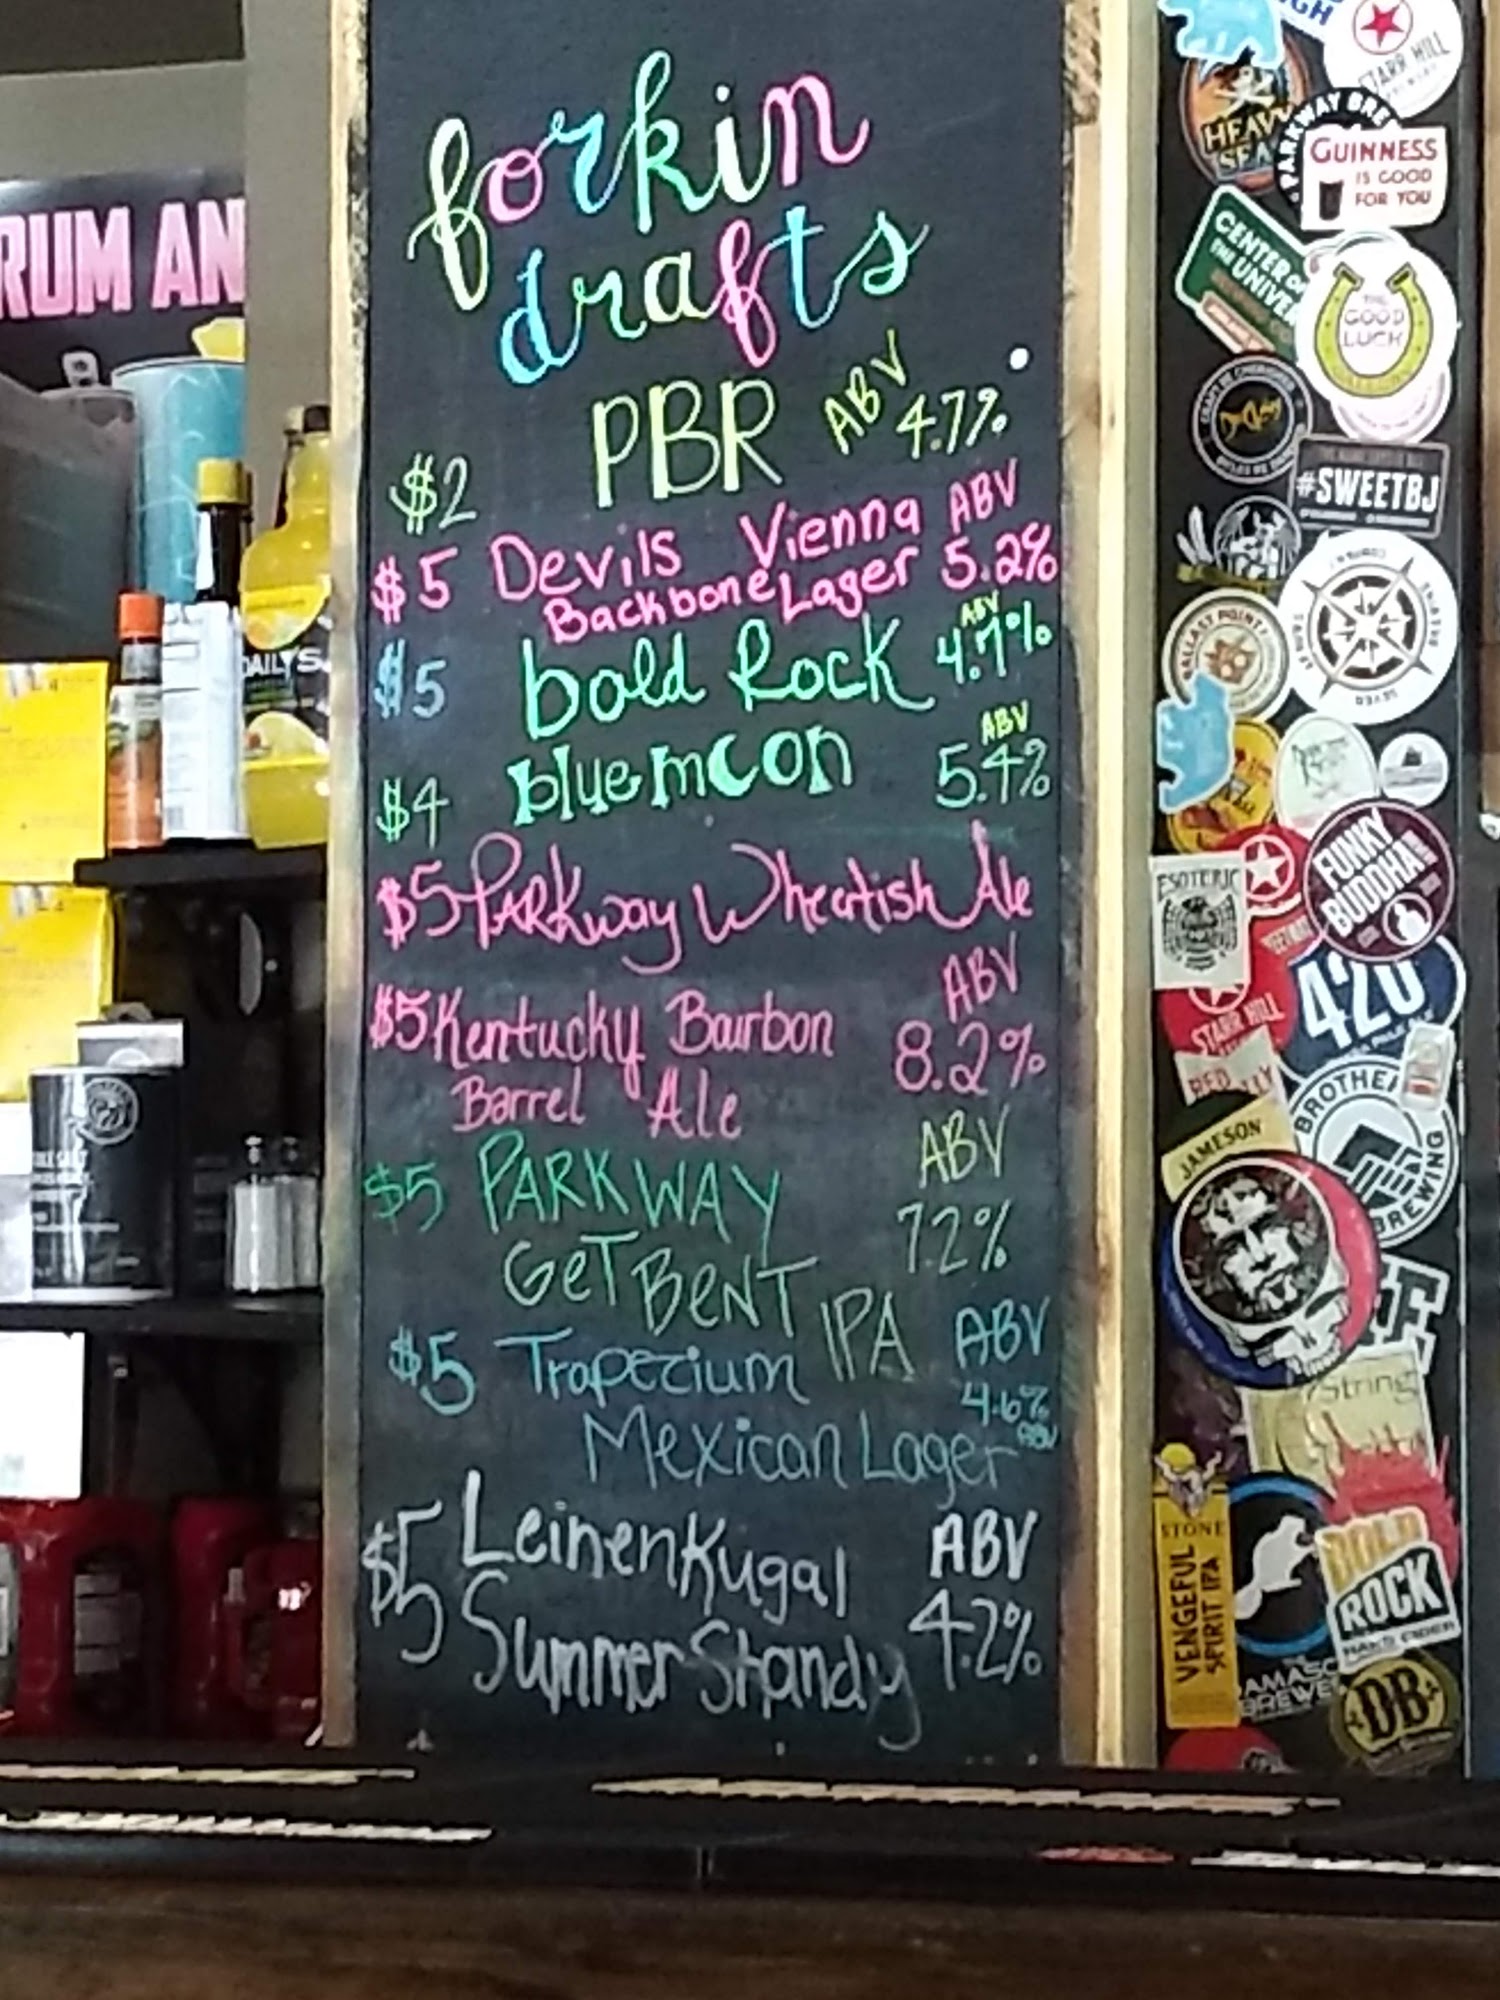 forkin
drafts
$2 PBR ABV 4.7%
$5 Devils Vienna ABV
Backbone Lager 5.2%
$5 bold Rock ABV 4.7%
$4 bluemoon ABV 5.4%
$5 PARKway Wheatish Ale
$5 Kentucky Bourbon ABV
Barrel Ale 8.2%
$5 PARKWAY ABV
GeT BeNT IPA 7.2%
$5 Trapezium ABV 4.6%
Mexican Lager ABV
$5 LeinenKugal ABV
Summer Shandy 4.2%
RUM AN
DAILY'S
STARR HILL
HEAVY
SEA
PARKWAY BRE
GUINNESS
IS GOOD
FOR YOU
CENTER OF
THE UNIVER
THE
GOOD
LUCK
#SWEETBJ
BALLAST POINT
FUNKY
BUDDHA
ESOTERIC
STARR HILL
420
RED
BROTHE
BREWING
JAMESON
String
STONE
VENGEFUL
SPIRIT IPA
BOLD
ROCK
HARD CIDER
AMASC
BREWE
DB